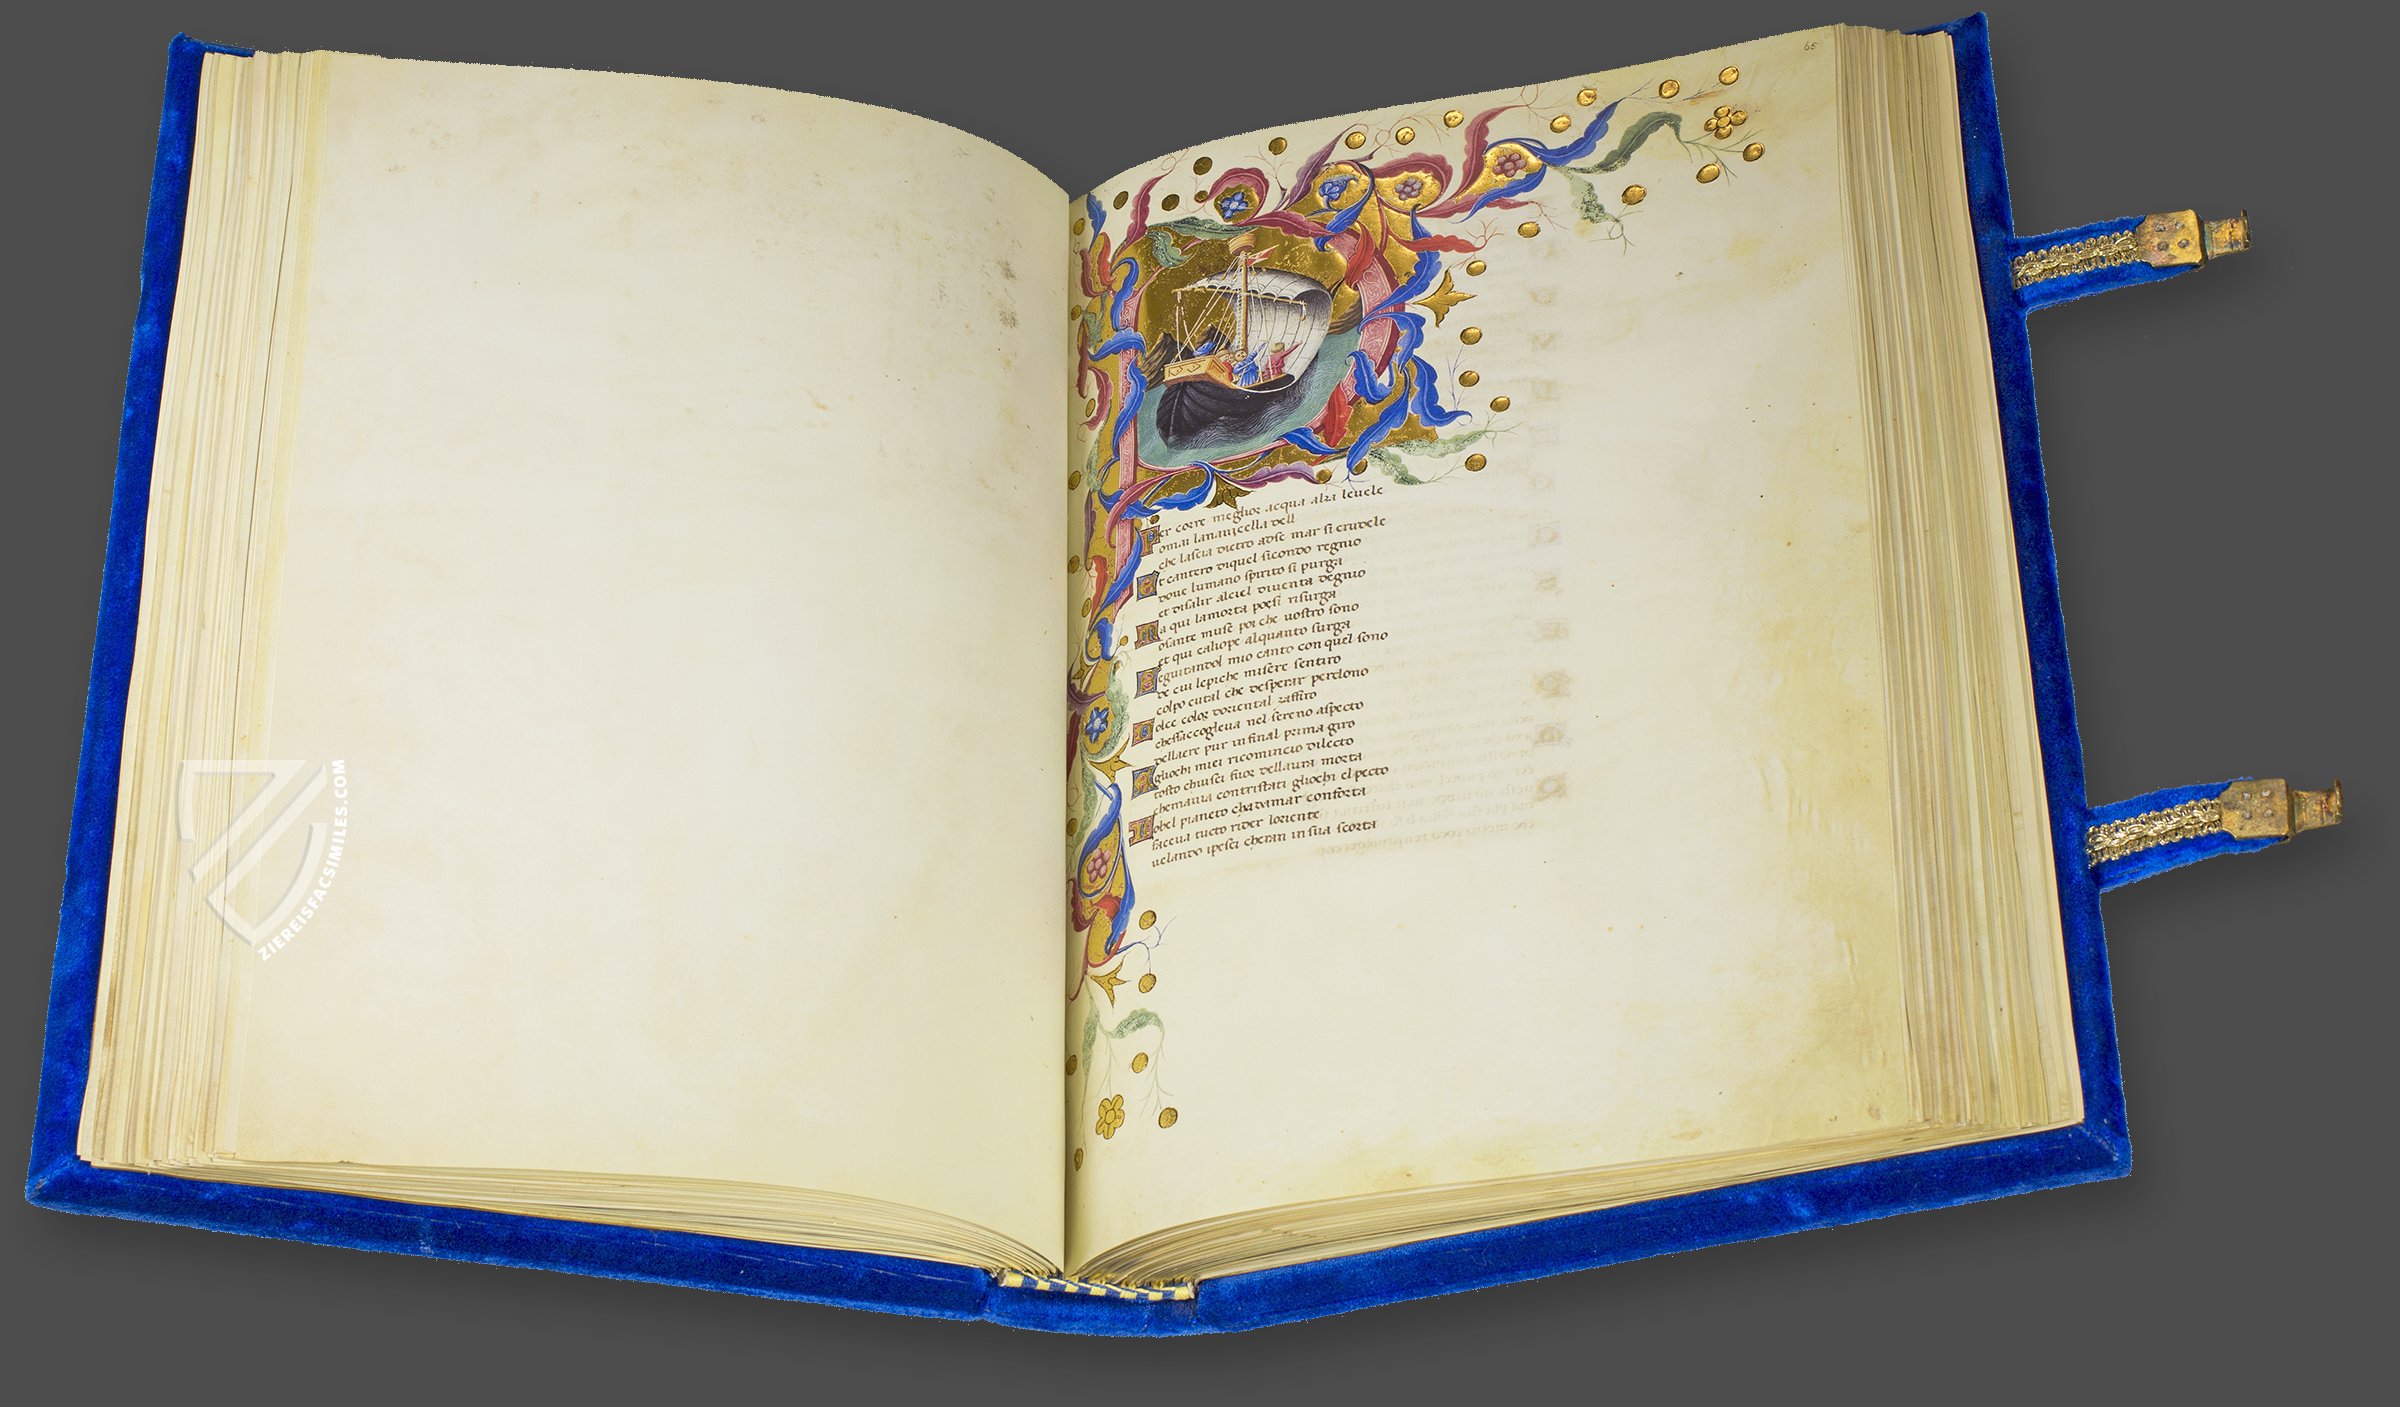 65
er corre meglior acqua alza leuele
omai lanauicella dell
che lascia dietro adse mar si crudele
Et cantero diquel sicondo regnio
doue lumano spirito si purga
et disalir alciel diuenta degnio
Ma qui lamorta poesi risurga
osante muse poi che uostro sono
et qui caliope alquanto surga
Seguitandol mio canto con quel sono
de cui lepiche misere sentiro
colpo cutal che desperar perdono
Dolce color doriental zaffiro
chessaccoglieua nel sereno aspecto
dellaere pur infinal prima giro
Agliochi miei ricomincio dilecto
tosto chiusci fuor dellaura morta
chemauia contristati gliochi elpecto
Lobel pianeto chadamar conforta
faceua tucto rider loriente
uelando ipesci cheran in sua scorta
ZIEREISFACSIMILES.COM